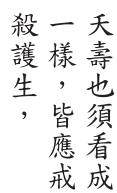 夭壽也須看成
一樣，皆應戒
殺護生，